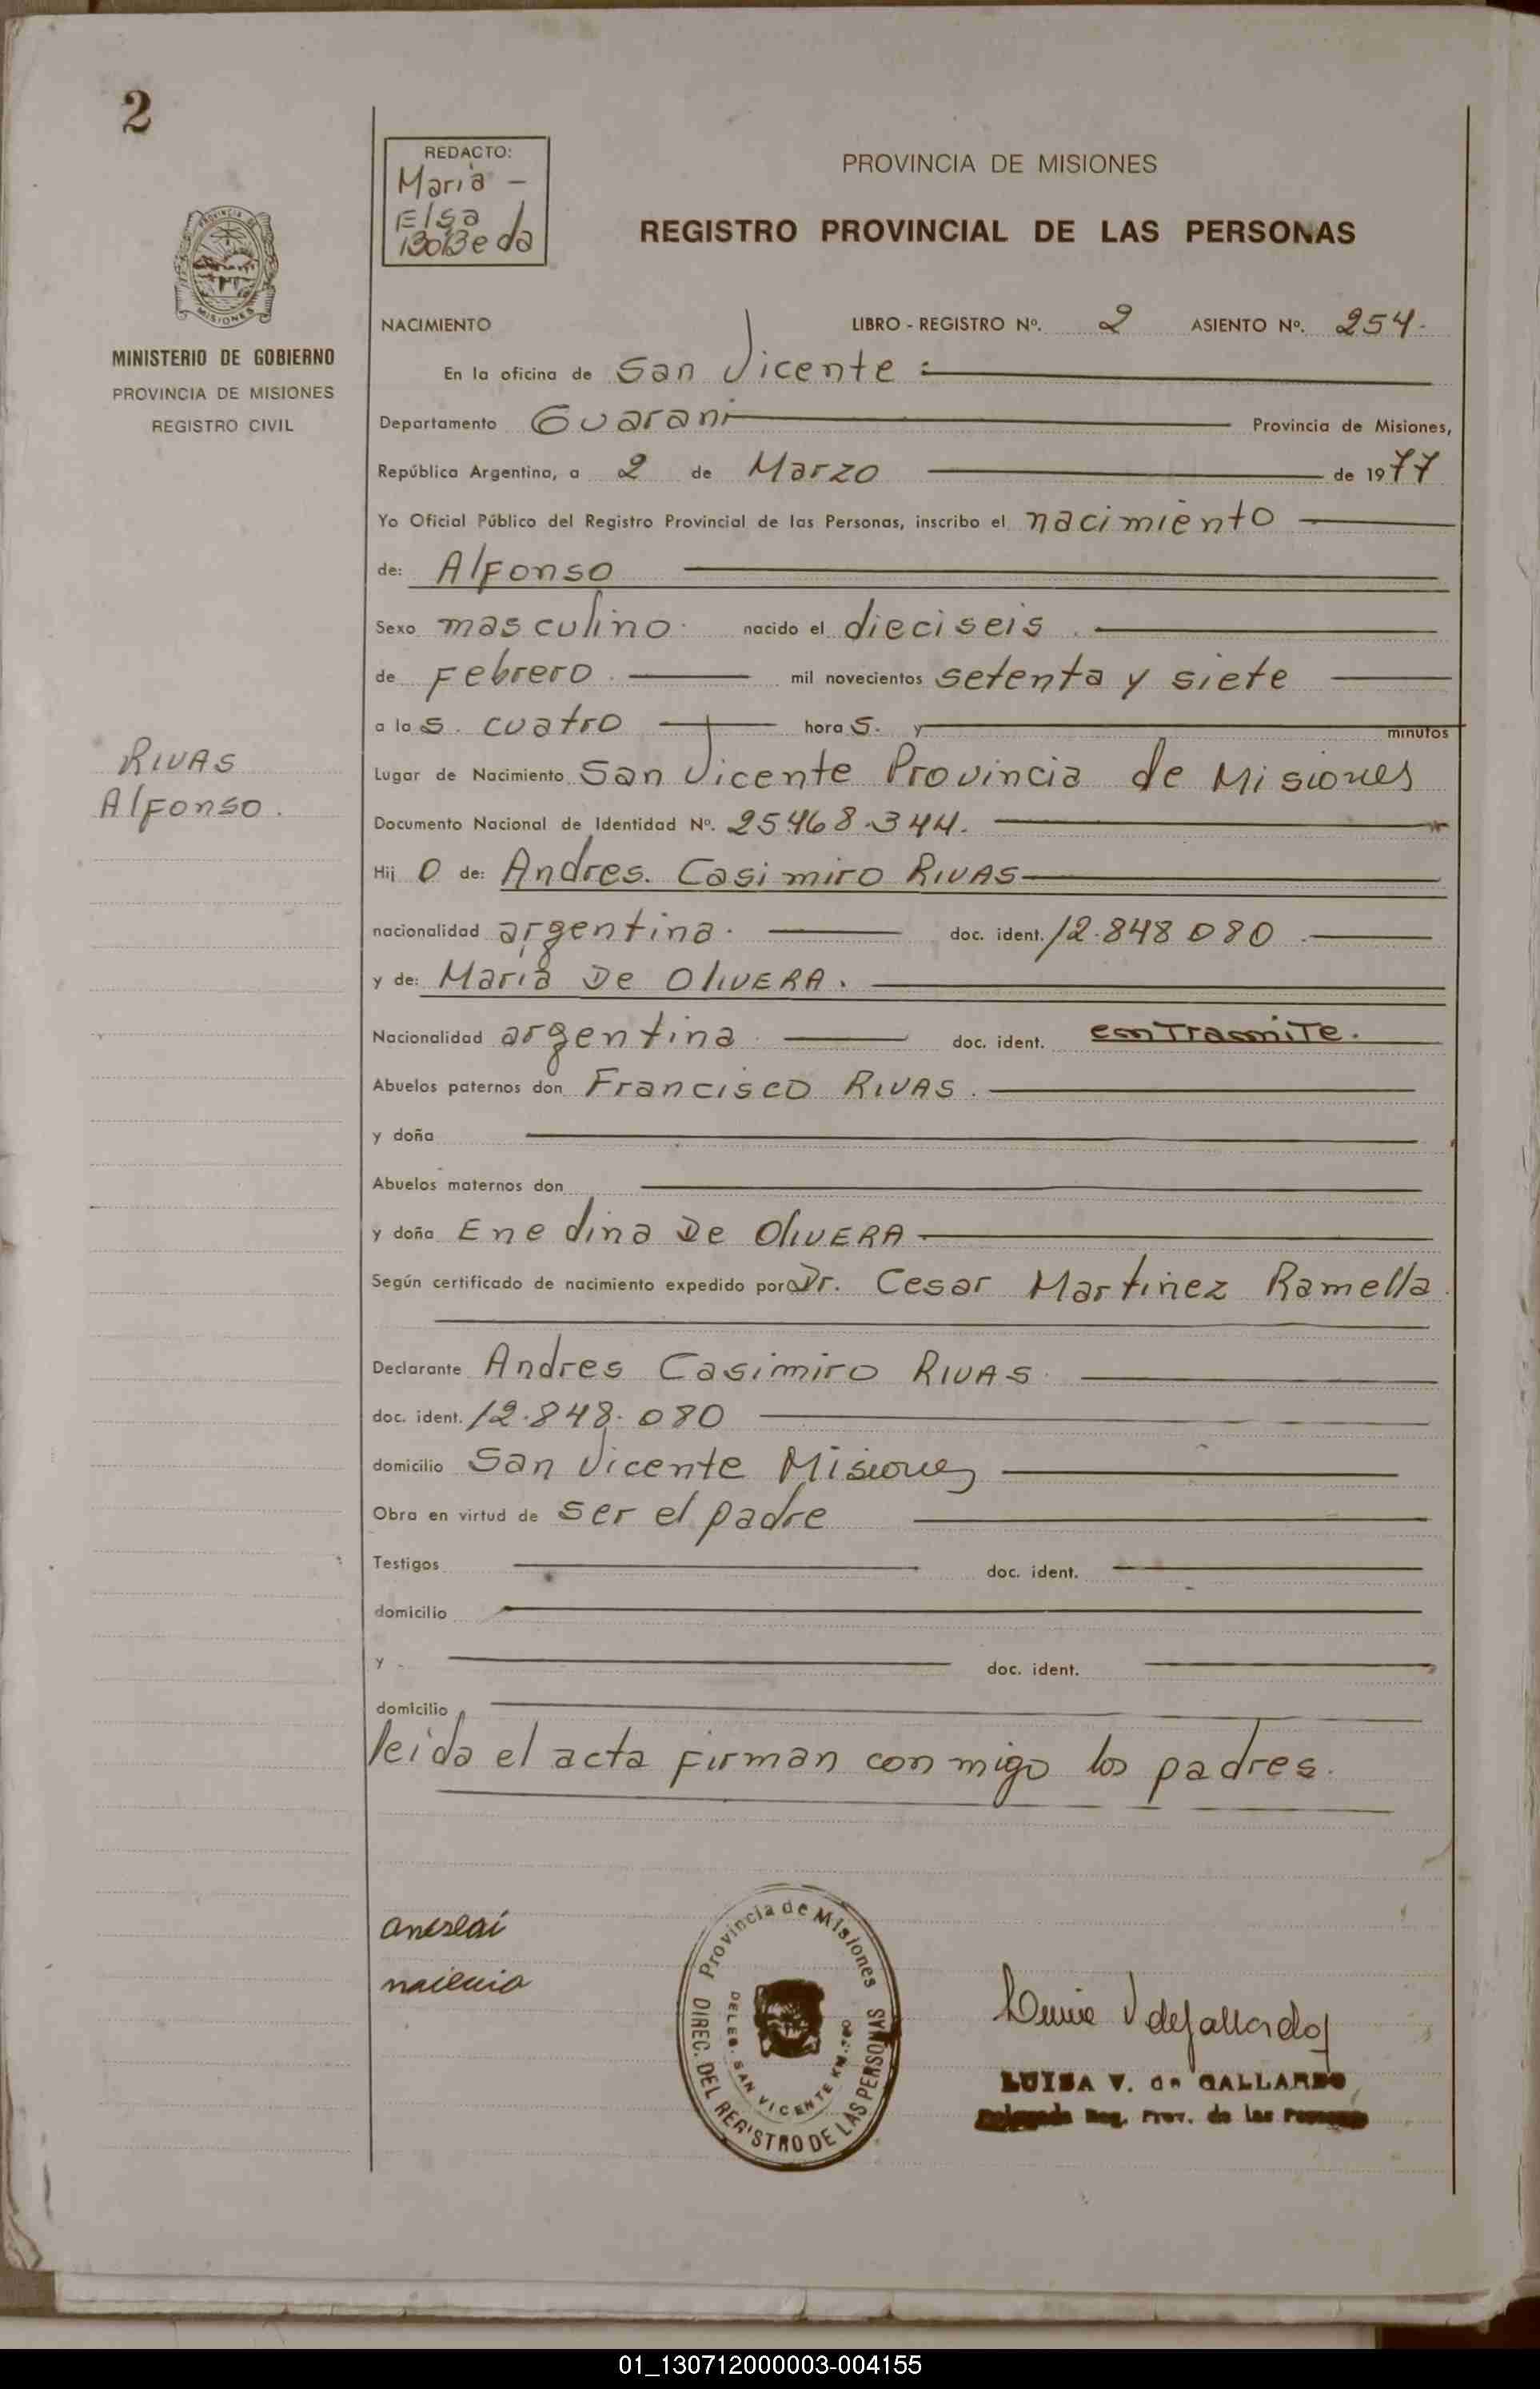 2
REDACTO:
Maria -
Elsa
BoBeda
PROVINCIA DE MISIONES
REGISTRO PROVINCIAL DE LAS PERSONAS
MISIONES
MINISTERIO DE GOBIERNO
PROVINCIA DE MISIONES
REGISTRO CIVIL
NACIMIENTO LIBRO - REGISTRO Nº. 2 ASIENTO Nº. 254.
En la oficina de San Vicente :
Departamento Guarani Provincia de Misiones,
República Argentina, a 2 de Marzo de 1977
Yo Oficial Público del Registro Provincial de las Personas, inscribo el nacimiento
de: Alfonso
Sexo masculino. nacido el dieciseis.
de Febrero. mil novecientos setenta y siete
a las. cuatro horas. y minutos
RIVAS
Alfonso.
Lugar de Nacimiento San Vicente Provincia de Misiones
Documento Nacional de Identidad Nº. 25468.344.
Hij o de: Andres. Casimiro RIVAS
nacionalidad argentina. doc. ident. 12.848 080.
y de: Maria De OliVERA.
Nacionalidad argentina doc. ident. en Tramite.
Abuelos paternos don Francisco RIVAS.
y doña
Abuelos maternos don
y doña Enedina De OliVERA
Según certificado de nacimiento expedido por Dr. Cesar Martinez Ramella.
Declarante Andres Casimiro RIVAS.
doc. ident. 12.848.080
domicilio San Vicente Misiones
Obra en virtud de ser el padre
Testigos doc. ident.
domicilio
y doc. ident.
domicilio
leida el acta firman con migo los padres.
Provincia de Misiones
DIREC. DEL REGISTRO DE LAS PERSONAS
DELEG. SAN VICENTE KM.
LUISA V. de GALLARDO
Delegada Reg. Prov. de las Personas
01_130712000003-004155